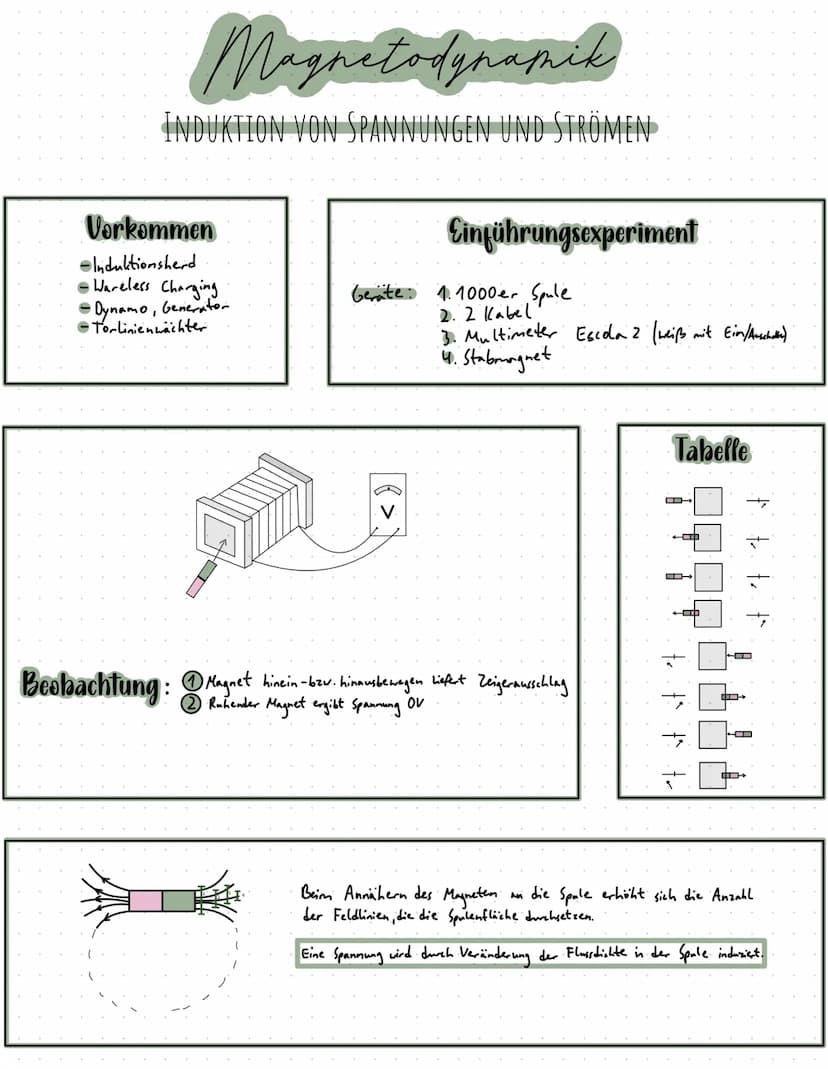 Magnetodynamik
INDUKTION VON SPANNUNGEN UND STRÖMEN
Vorkommen
- Induktionsherd
- Wareless Charging
- Dynamo, Generator
- Torlinienwächter
Einführungsexperiment
Geräte: 1. 1000er Spule
2. 2 Kabel
3. Multimeter Escola 2 (weiß mit Ein/Ausschalter)
4. Stabmagnet
V
Beobachtung: 1 Magnet hinein- bzw. hinausbewegen liefert Zeigerausschlag
2 Ruhender Magnet ergibt Spannung 0V
Tabelle
Beim Annähern des Magneten an die Spule erhöht sich die Anzahl
der Feldlinien, die die Spulenfläche durchsetzen.
Eine Spannung wird durch Veränderung der Flussdichte in der Spule induziert.